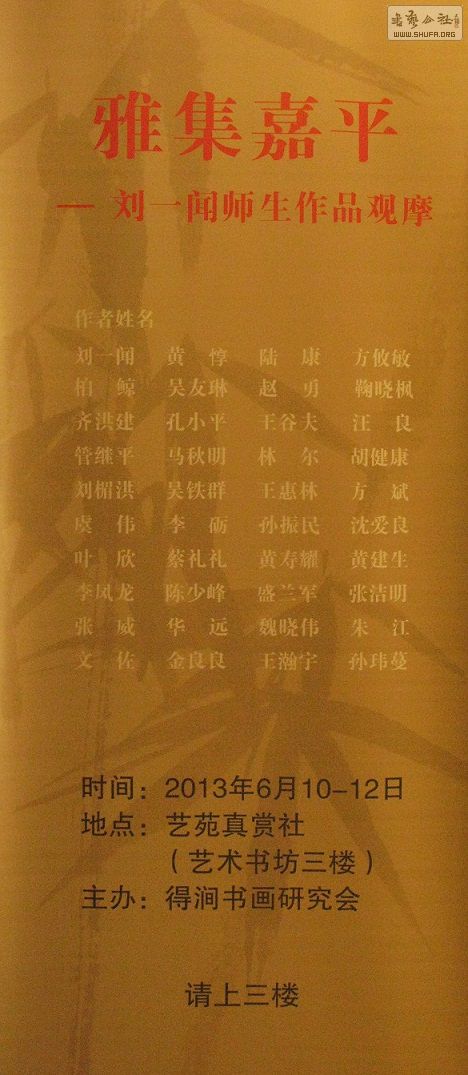 书艺公社
WWW.SHUFA.ORG
雅集嘉平
— 刘一闻师生作品观摩
作者姓名
刘一闻 黄惇 陆康 方攸敏
柏鲸 吴友琳 赵勇 鞠晓枫
齐洪建 孔小平 王谷夫 汪良
管继平 马秋明 林尔 胡健康
刘楣洪 吴铁群 王惠林 方斌
虞伟 李砺 孙振民 沈爱良
叶欣 蔡礼礼 黄寿耀 黄建生
李凤龙 陈少峰 盛兰军 张洁明
张威 华远 魏晓伟 朱江
文佐 金良良 王瀚宇 孙玮蔓
时间：2013年6月10-12日
地点：艺苑真赏社
（艺术书坊三楼）
主办：得涧书画研究会
请上三楼